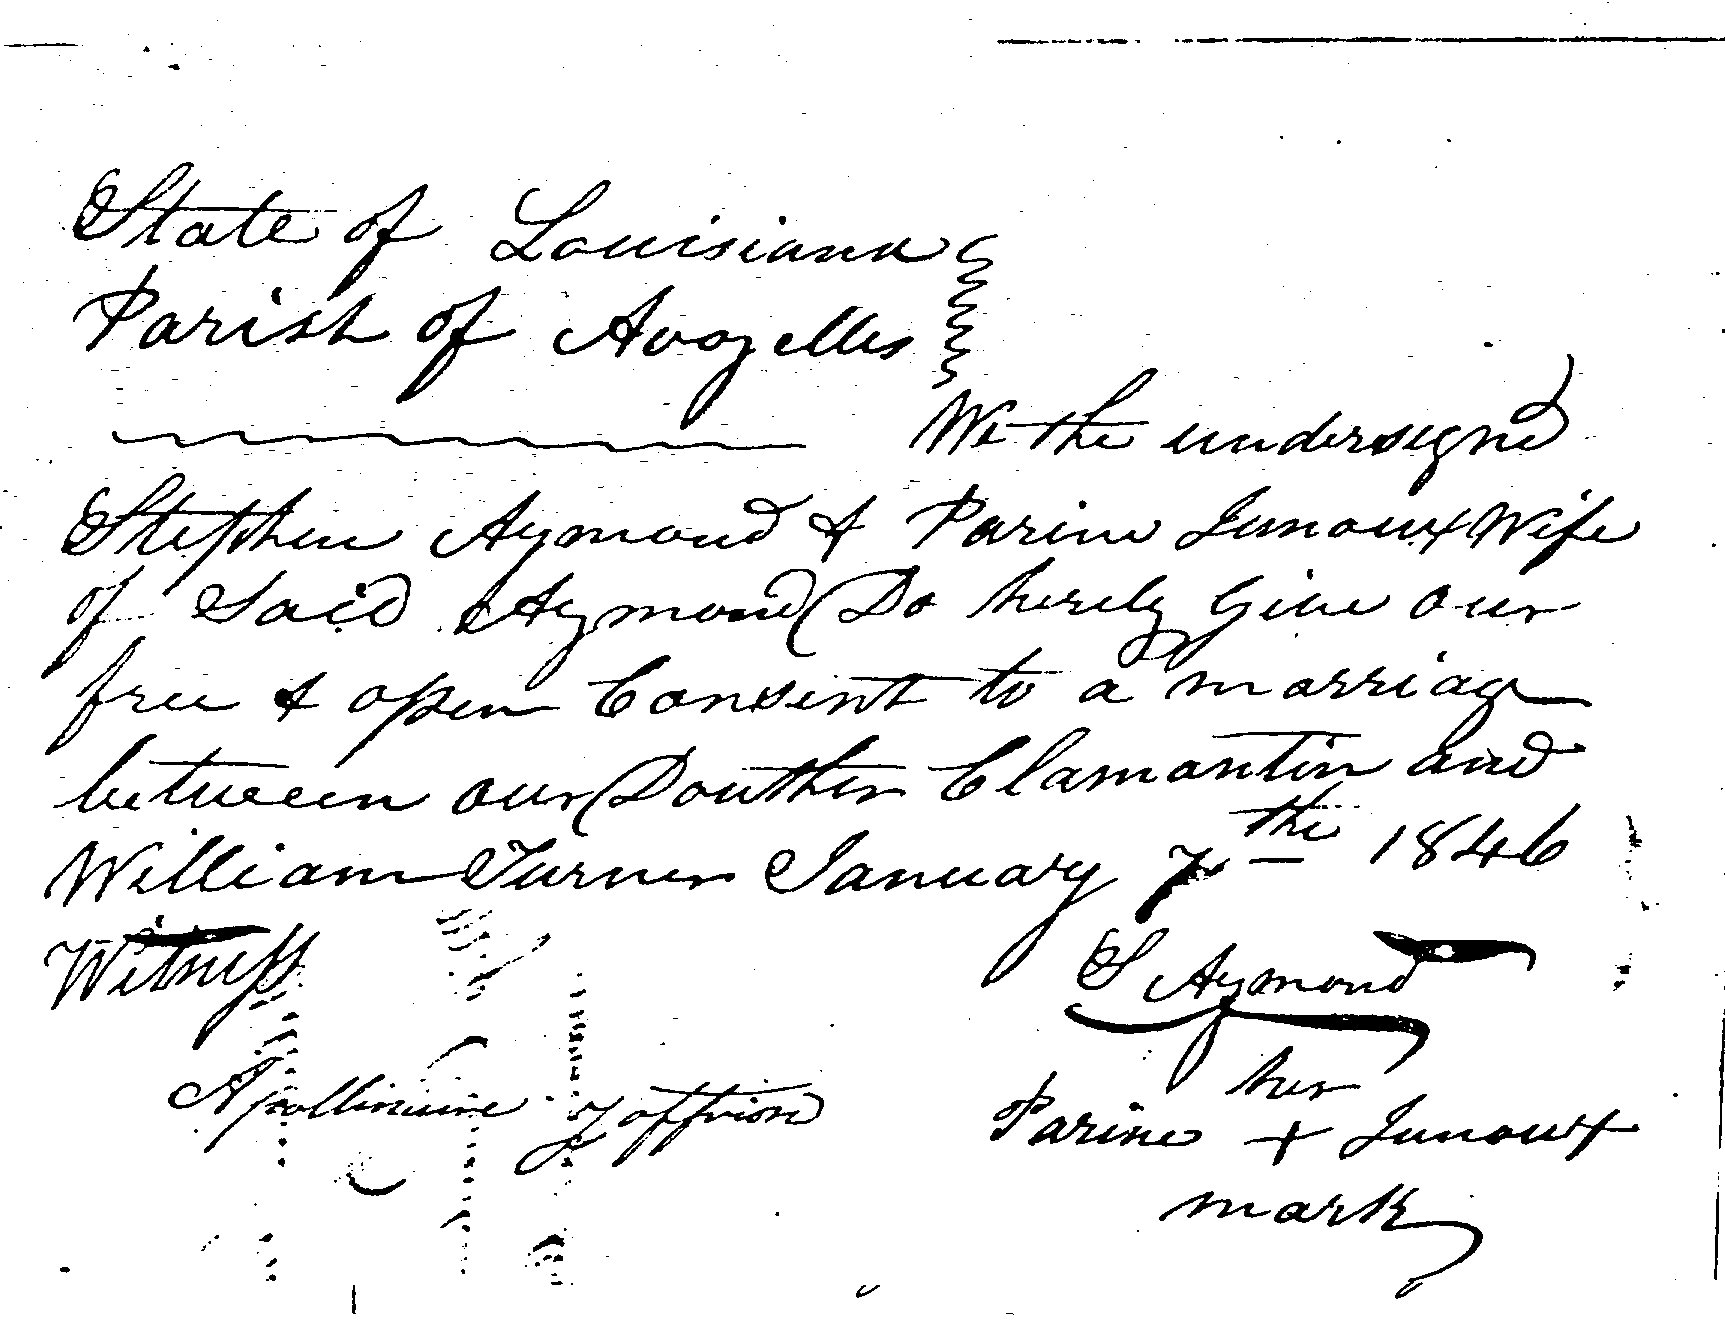 State of Louisiana
Parish of Avoyelles
We the undersigned
Stephen Aymond & Parine Junoux Wife
of Said Aymond Do hereby Give our
free & open Consent to a marriage
between our Douther Clamantin and
William Turner January 7th the 1846
Witness
S Aymond
her
Apollinaire Joffrion
Parine + Junoux
mark